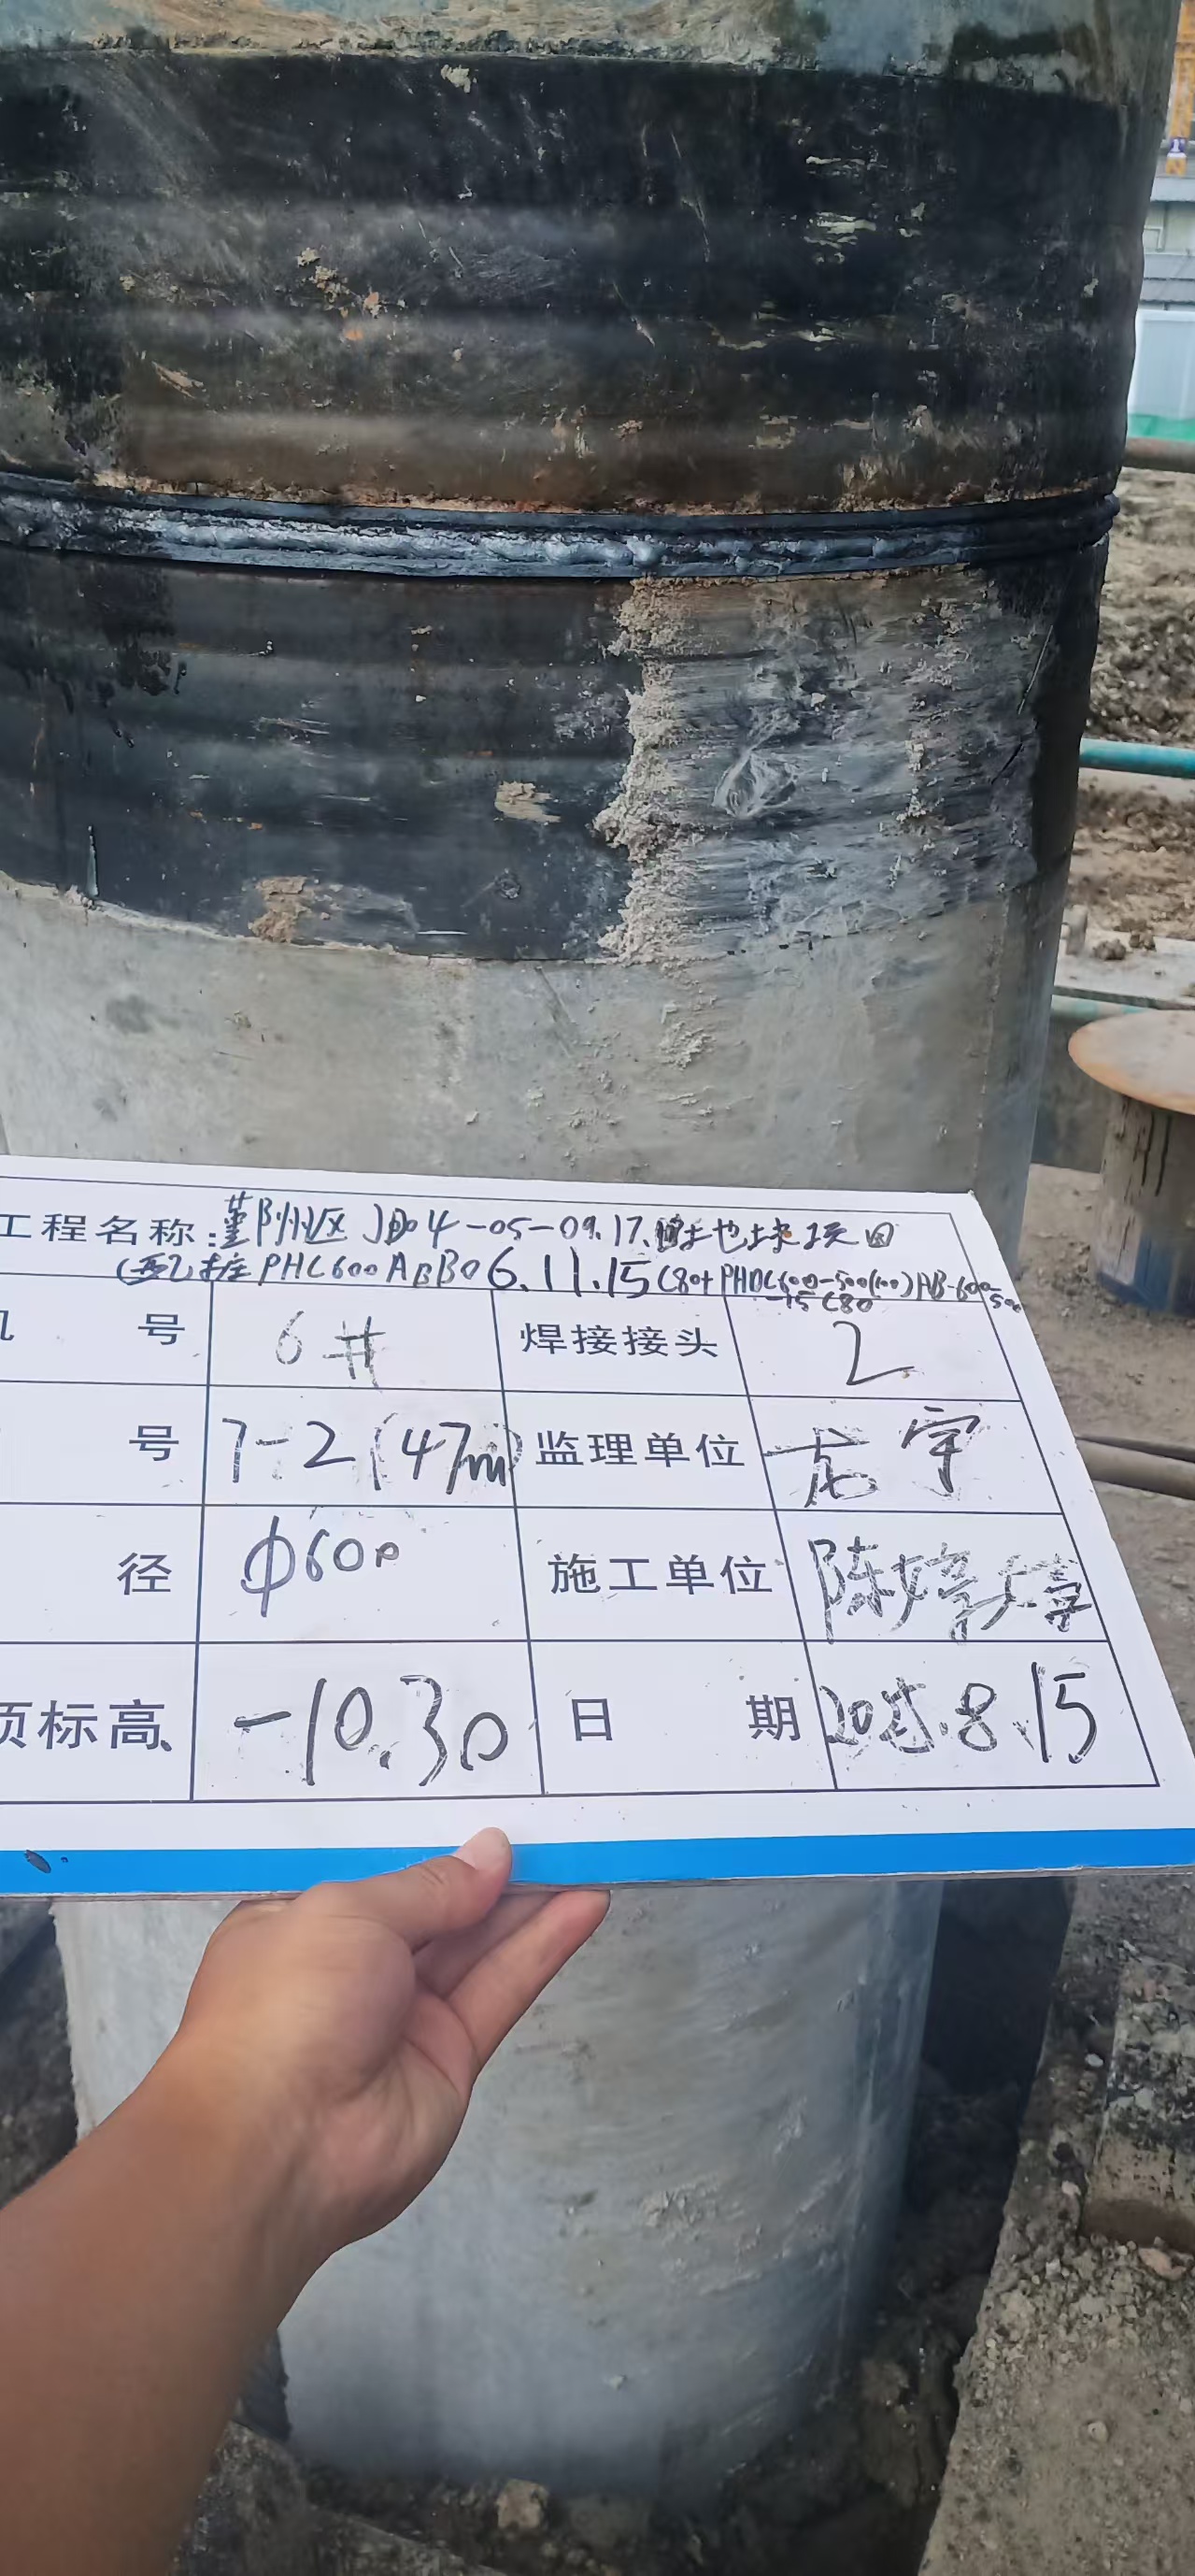 工程名称:鄞州区JD04-05-09.17.地块项目
(配)桩PHC600AB130 6.11.15 C80+PHDC600-500(100)AB-600-500
-15 C80
号 6# 焊接接头 2
号 7-2(47m) 监理单位 龙宇
径 Φ600 施工单位 陈婷婷
顶标高 -10.30 日期 2025.8.15